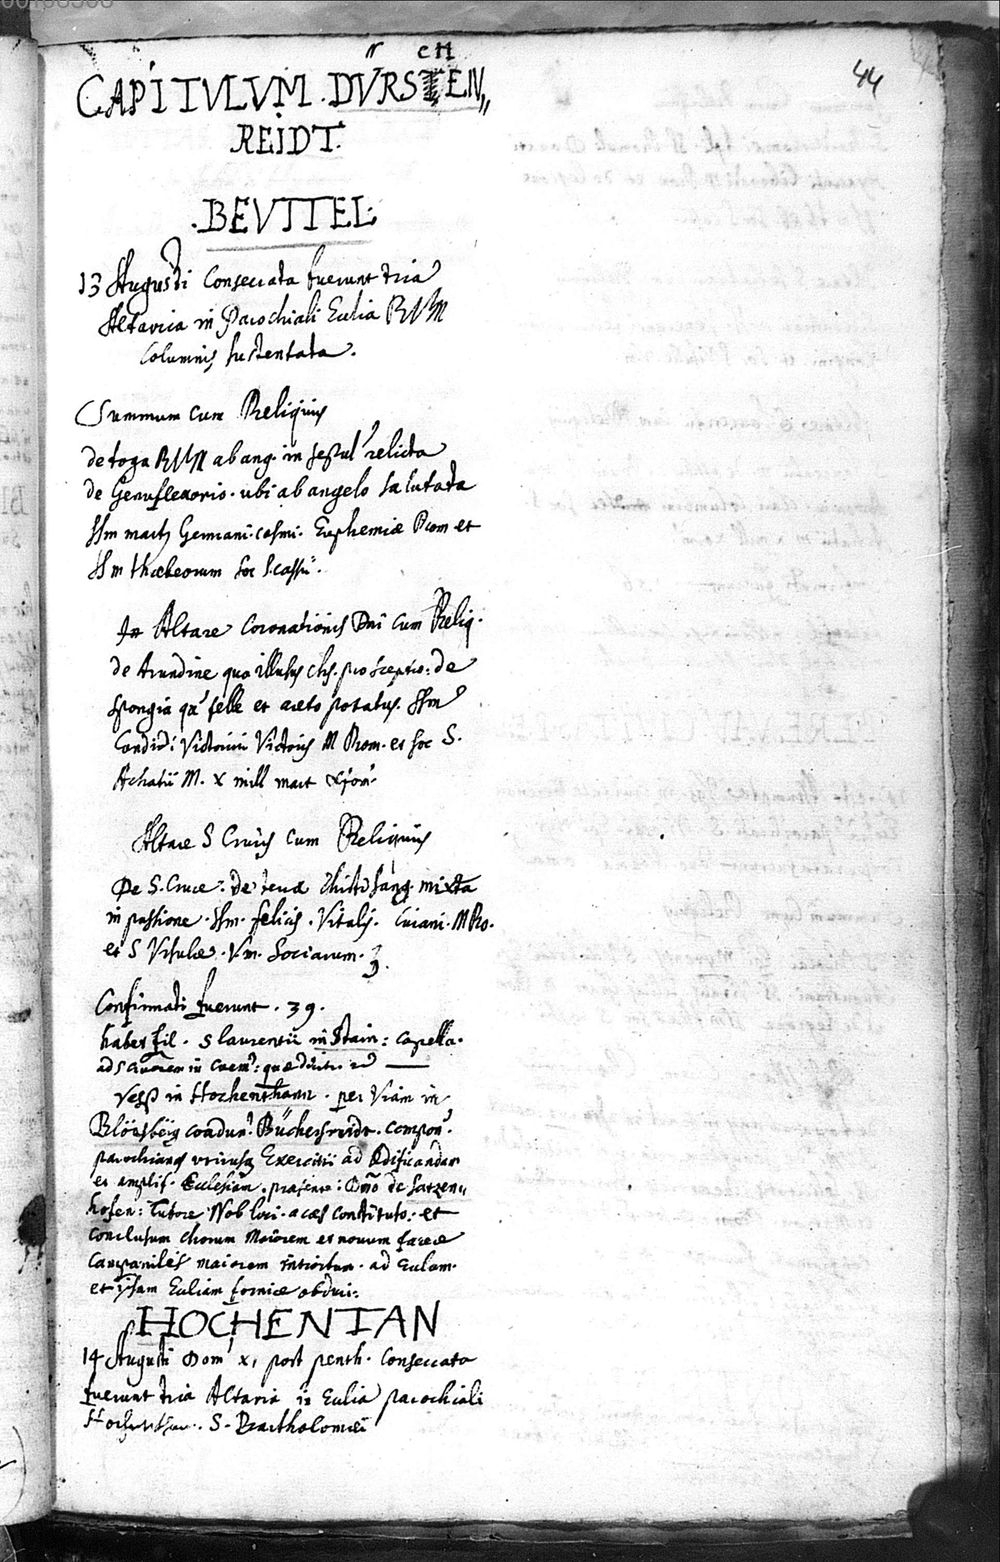 44
CAPITULUM. DŸRSTEN„
REIDT.
.BEUTTEL.
13 Augusti Consecrata fuerunt tria
Altaria in Parochiali Ecclia BVM
Columnis sustentata.
Summum cum Reliquiis
de toga BVM ab ang. in sepul relicta
de Genuflexorio. ubi ab angelo salutata
SSm mart Germani. Cosmi. Euphemiæ Rom et
SSm thæbeorum Soc S. Cassii.
In Altare Coronationis Dni cum Reliq.
de Arundine qua illusus chs. pro sceptro: de
Spongia qa felle et aceto potatus. SSm
Candidi Victorini Victoris M Rom. et soc S.
Achatii M. x mill mart
Altare S Crucis cum Reliquiis
De S. Cruce: De terra Christi sang. mixta
in passione. SSm. felicis. Vitalis. M Ro.
et S Ursulæ. Vm. Sociarum. 3.
Confirmati fuerunt. 39.
habet fil. S laurentii in Stain: capella.
ad S in
in Hochenthann. per Viam in
compon.
parochianos utriusq Exercitii ad ædificandam
et amplif. Ecclesiam. præsente: Dno de Satzen„
hofen: Tutore Nob loci. a cæs constituto: et
conclusum chorum Maiorem et novum facere
Campanile maiorem introitum. ad Eccliam.
et ipsam Eccliam fornice obduci.
HOCHENTAN
14 Augusti Dom x, post penth. Consecrata
fuerunt tria Altaria in Ecclia parochiali
S. Bartholomæi